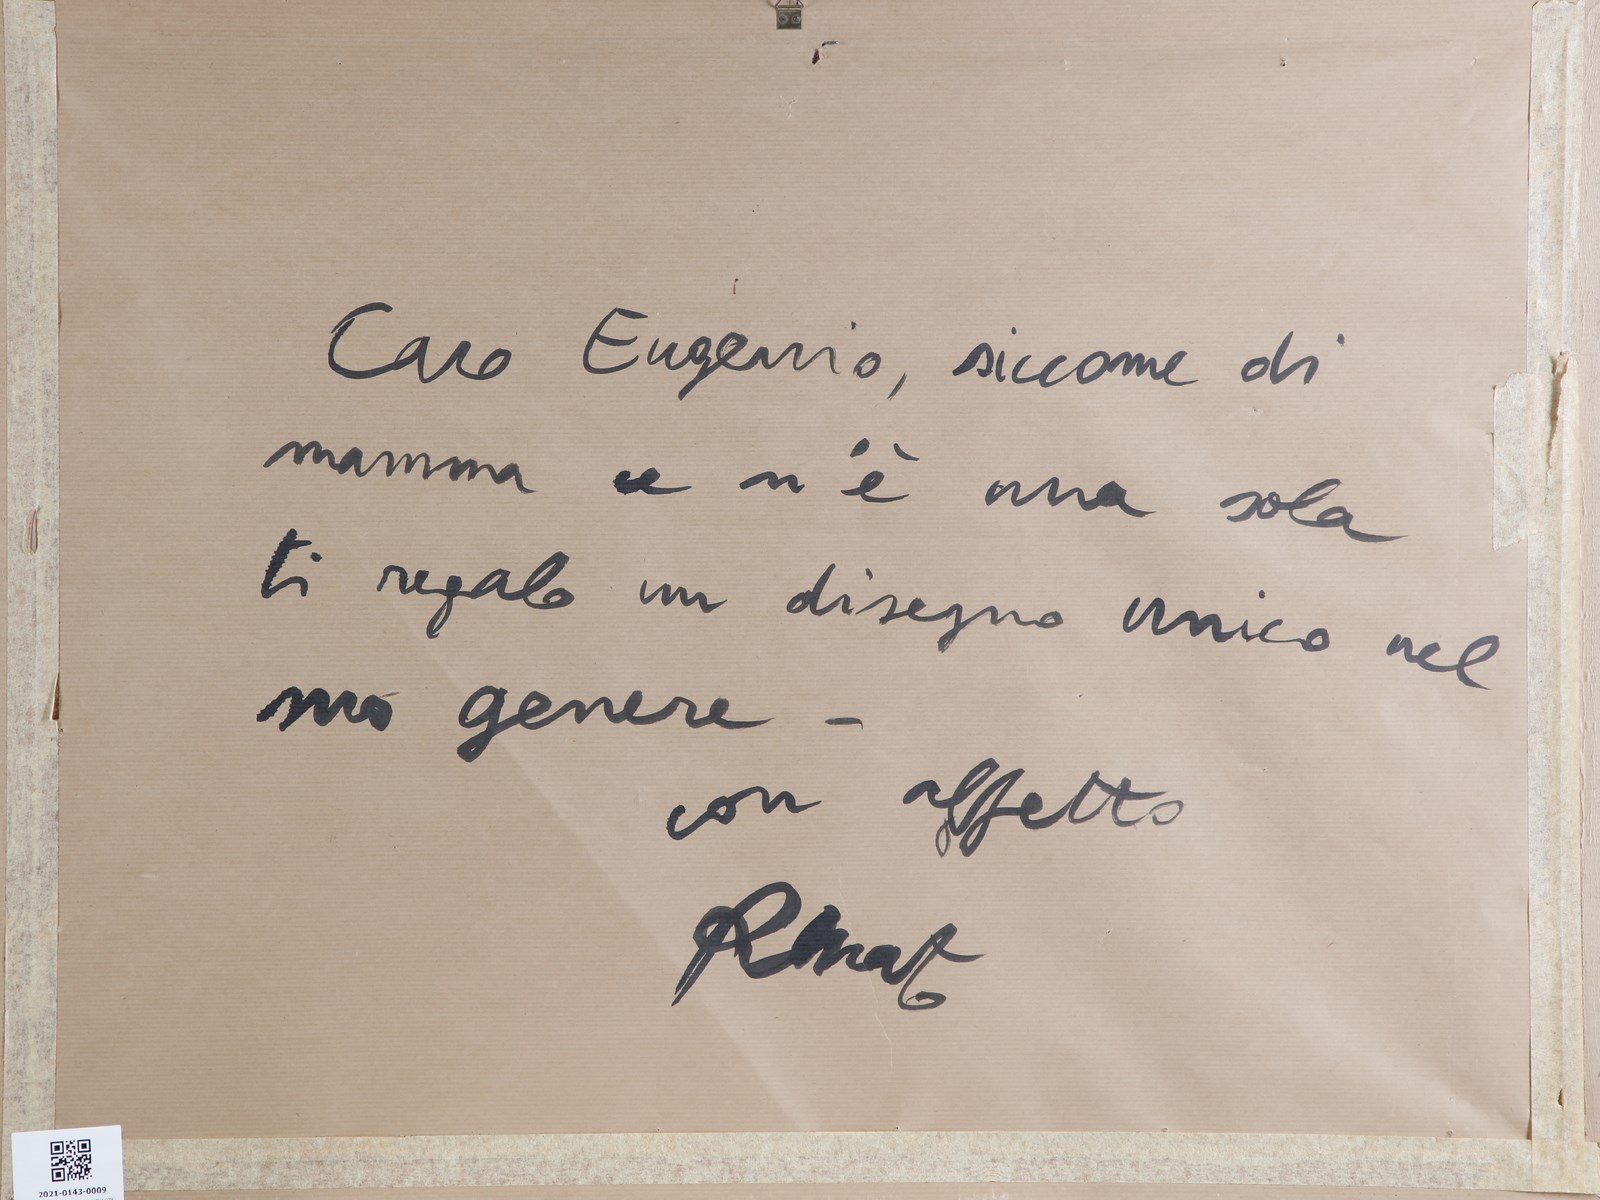 Caro Eugenio, siccome di
mamma ce n'è una sola
ti regalo un disegno unico nel
suo genere -
con affetto
Renato
2021-0143-0009